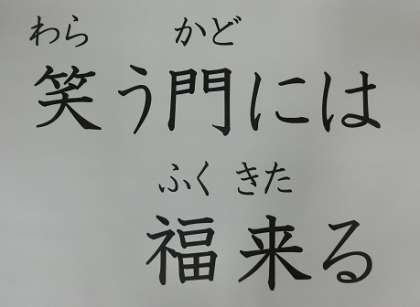 わら かど
笑う門には
ふく きた
福来る